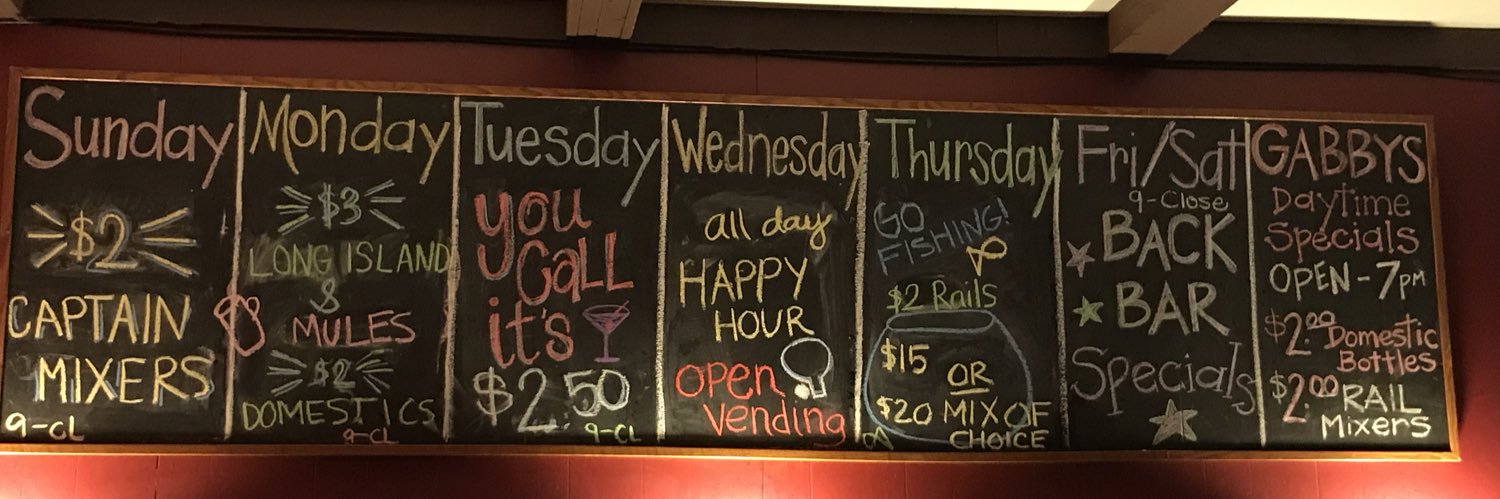 Sunday
$2
CAPTAIN
MIXERS
9-CL
Monday
$3
LONG ISLAND
&
MULES
$2
DOMESTICS
9-CL
Tuesday
you
CALL
it's
$2.50
9-CL
Wednesday
all day
HAPPY
HOUR
open
vending
Thursday
GO
FISHING!
$2 Rails
$15
OR
$20 MIX OF
CHOICE
Fri/Sat
9-Close
BACK
BAR
Specials
GABBYS
Daytime
Specials
OPEN-7pm
$2.00 Domestic
Bottles
$2.00 RAIL
Mixers